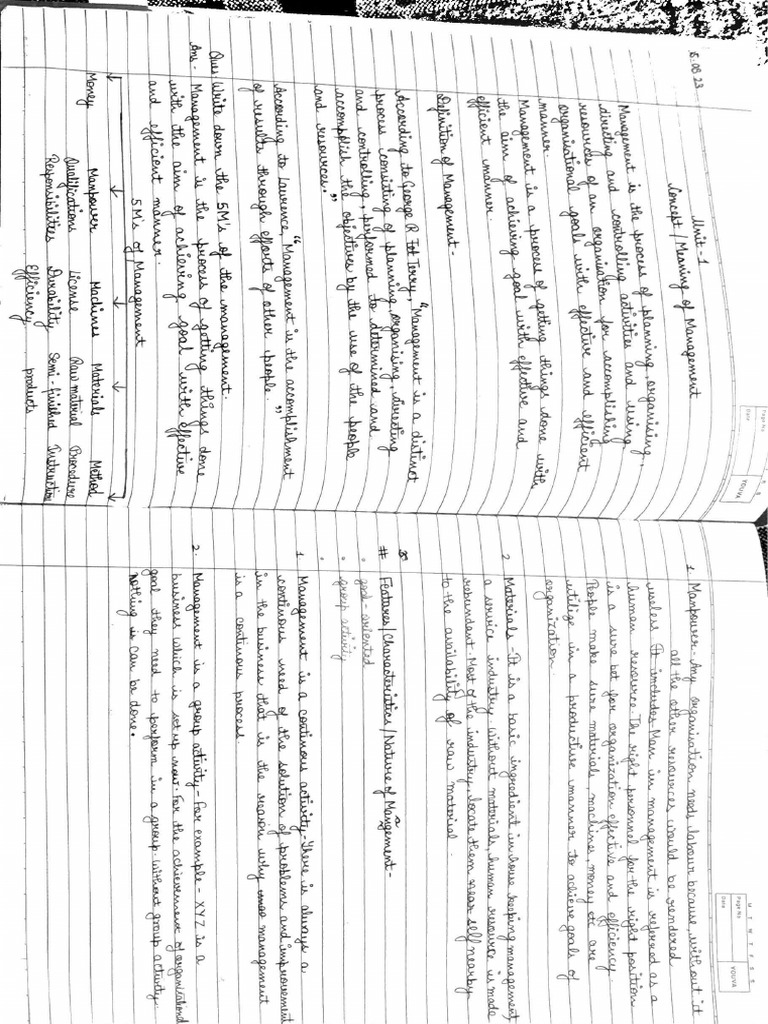 5.08.23
Page No.
Date
YOUVA
Unit-1
Concept/Meaning of Management
Management is the process of planning, organising,
directing and controlling activities and using
resources of an organisation for accomplishing
organisational goals with effective and efficient
manner.
Management is a process of getting things done with
the aim of achieving goal with effective and
efficient manner.
Definition of Management-
According to George R Terry, "Management is a distinct
process consisting of planning, organising, directing
and controlling, performed to determined and
accomplish the objectives by the use of the people
and resources."
According to Laurence, "Management is the accomplishment
of results through efforts of other people."
Ques: Write down the 5M's of the management.
Ans - Management is the process of getting things done
with the aim of achieving goal with effective
and efficient manner.
5M's of Management
Money Manpower Machines Materials Method
Qualifications License Raw material Procedure
Responsibilities Durability Semi-finished Instruction
Efficiency products
M T W T F S S
Page No.
Date
YOUVA
1 Manpower- Any organisation needs labour because, without it
all the other resources would be rendered
useless. It includes Man in management is referred as a
human resource. The right personnel for the right position
is a sure bet for organization effective and efficiency.
People make sure materials, machines, money etc are
utilize in a productive manner to achieve goals of
organization.
2 Materials - It is a basic ingredient in house keeping management,
a service industry. without materials, human resource is made
redundant. Most of the industry, locate them near self nearby
to the availability of raw material.
# Features/Characteristics/Nature of Management-
• goal-oriented
• group activity
•
1. Management is a continous activity- There is always a
continous need of the solution of problems and improvement
in the business that is the reason why management
is a continous process.
2. Management is a group activity- For example- XYZ is a
business which is set up now. For the achievement of organisational
goal they need to perform in a group. without group activity
nothing is can be done.